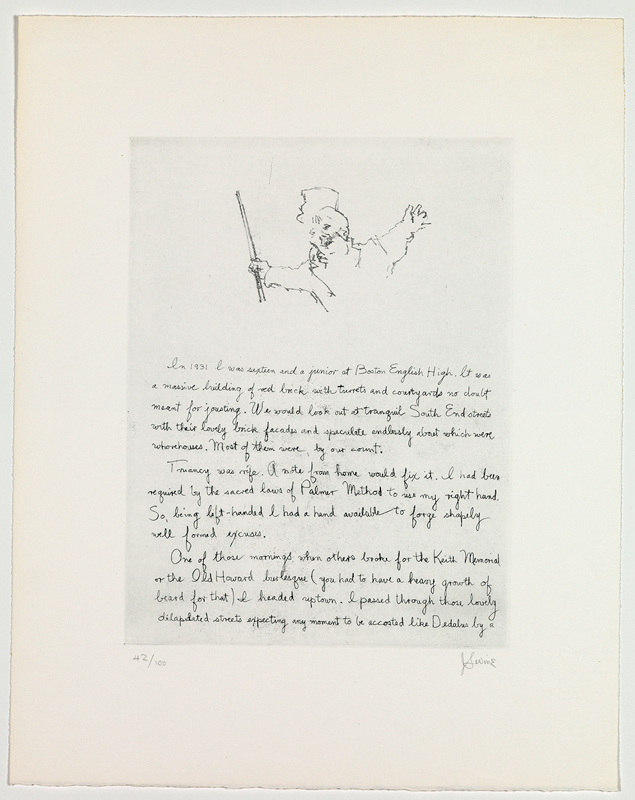 In 1931 I was sixteen and a junior at Boston English High. It was
a massive building of red brick with turrets and courtyards no doubt
meant for jousting. We would look out at tranquil South End streets
with their lovely brick facades and speculate endlessly about which were
whorehouses. Most of them were, by our count.
Truancy was rife. A note from home would fix it. I had been
required by the sacred laws of Palmer Method to use my right hand.
So, being left-handed I had a hand available to forge shapely
well formed excuses.
One of those mornings when others broke for the Keith Memorial
or the Old Howard burlesque (you had to have a heavy growth of
beard for that) I headed uptown. I passed through those lovely
dilapidated streets expecting any moment to be accosted like Dedalus by a
42/100
JLevine